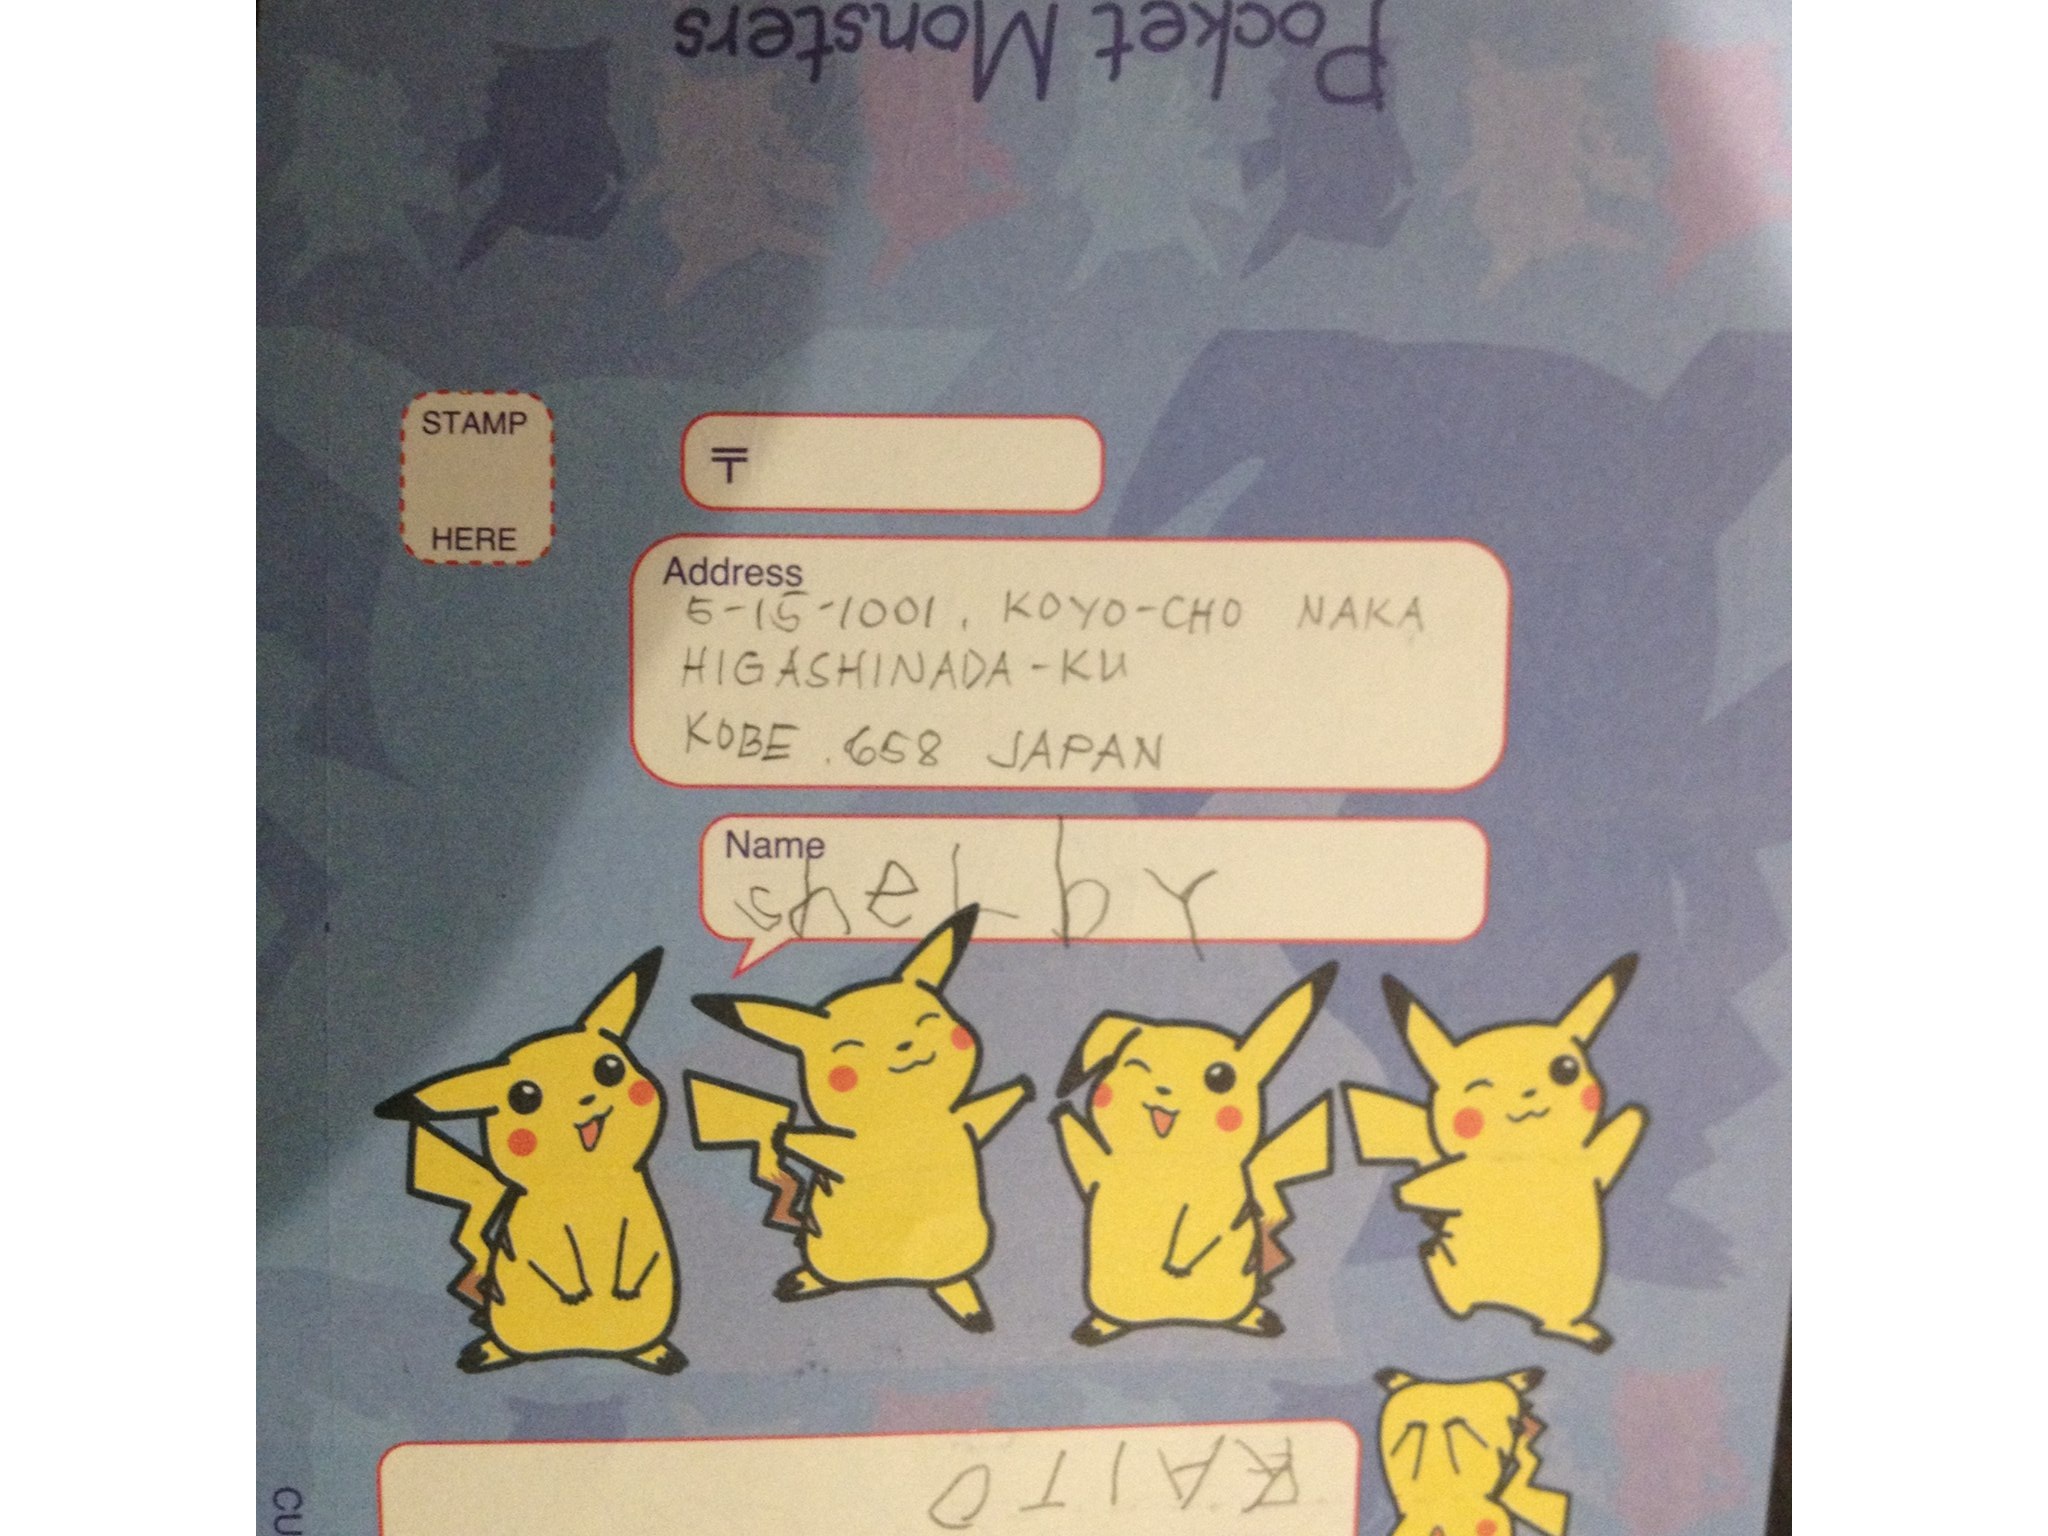 Pocket Monsters
STAMP
HERE
〒
Address
5-15-1001, KOYO-CHO NAKA
HIGASHINADA-KU
KOBE .658 JAPAN
Name
shelby
KAITO
CU